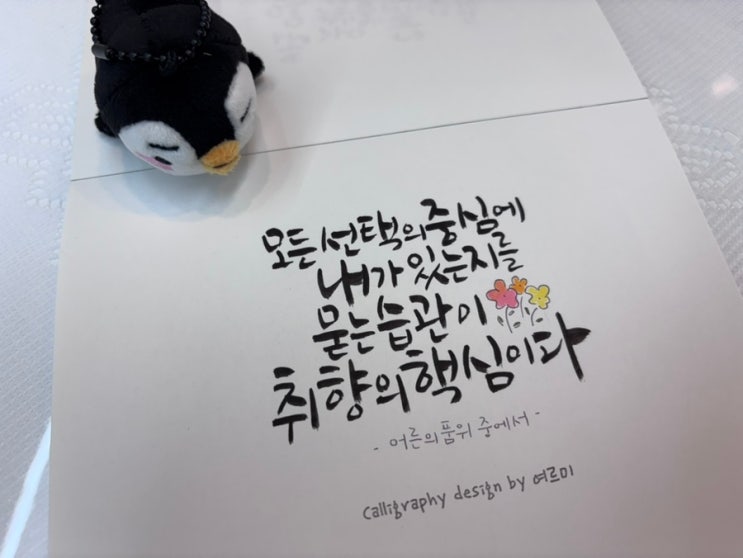 모든 선택의 중심에
내가 있는지를
묻는 습관이
취향의 핵심이다
- 어른의 품위 중에서 -
calligraphy design by 여르미